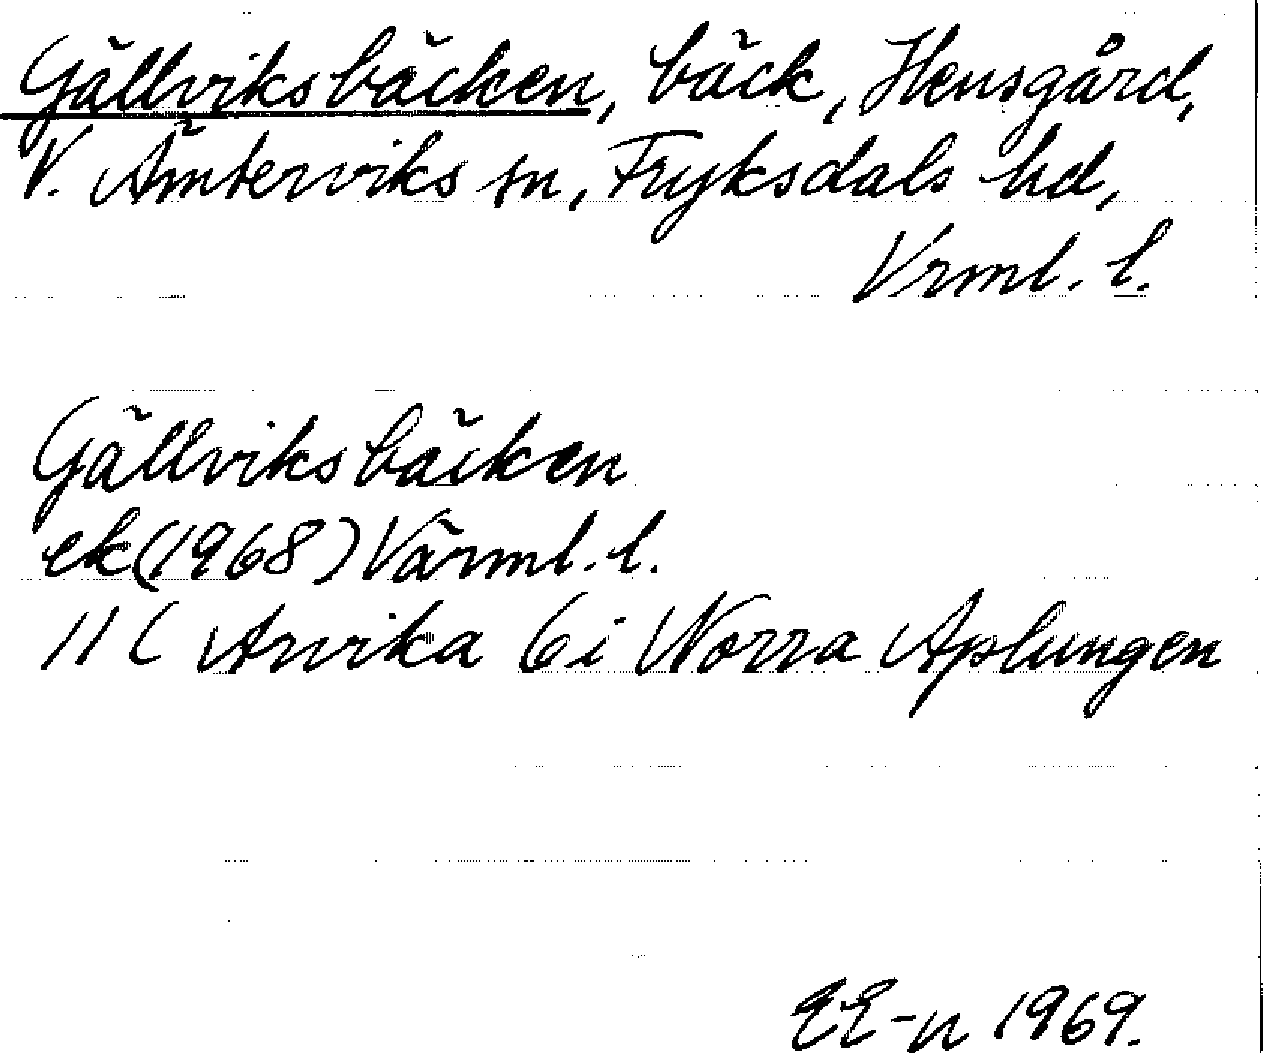 Gällviksbäcken, bäck, Hensgård,
V. Ämterviks sn, Fryksdals hd,
Vrml. l.
Gällviksbäcken
ek (1968) Värml. l.
11 C Arvika 6i Norra Aplungen
EE-n 1969.